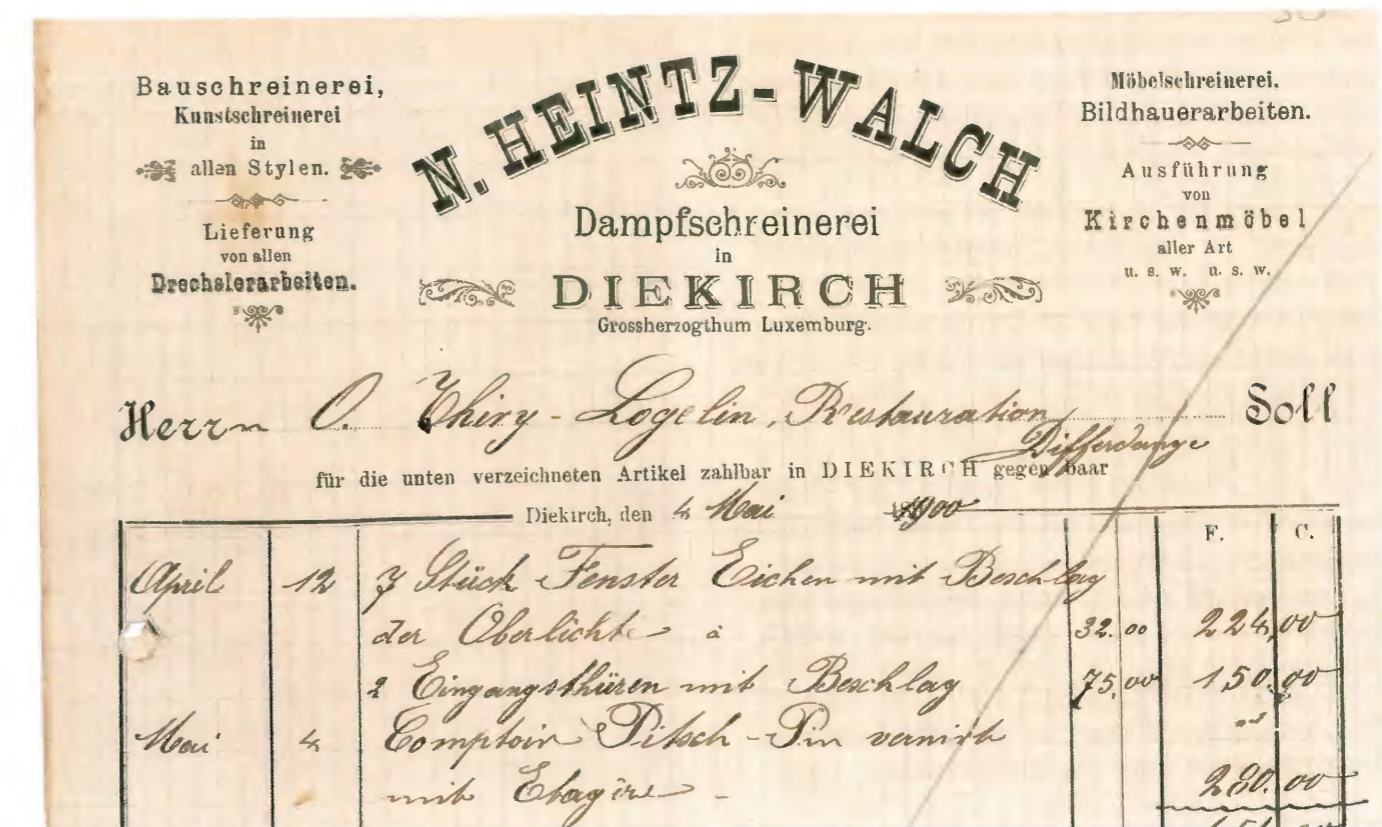 Bauschreinerei,
Kunstschreinerei
in
allen Stylen.
Lieferung
von allen
Drechslerarbeiten.
N. HEINTZ-WALCH
Dampfschreinerei
in
DIEKIRCH
Grossherzogthum Luxemburg.
Möbelschreinerei.
Bildhauerarbeiten.
Ausführung
von
Kirchenmöbel
aller Art
u. s. w. u. s. w.
Herrn O. Thiry-Logelin, Restauration Soll
Differdange
für die unten verzeichneten Artikel zahlbar in DIEKIRCH gegen baar
Diekirch, den 4 Mai 1900
F. C.
April 12 7 Stück Fenster Eichen mit Beschlag
der Oberlichte à 32.00 224,00
2 Eingangsthüren mit Beschlag 75,00 150,00
Mai 4 Comptoir Pitsch-Pin vernirt
mit Etagère 280.00